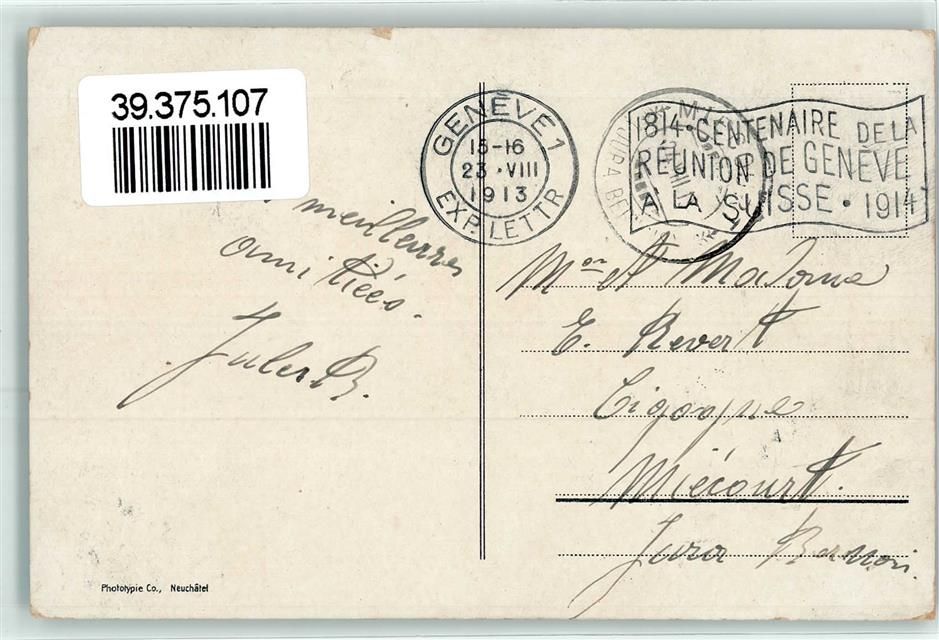 39.375.107
GENÈVE 1
15-16
23·VIII
1913
EXP. LETTR
1814·CENTENAIRE DE LA
RÉUNION DE GENÈVE
À LA SUISSE·1914
meilleures
amitiées.
Jules B.
Mon et Madame
E. Revert
Cigogne
Miécourt.
Jura Bernois.
Phototypie Co., Neuchâtel